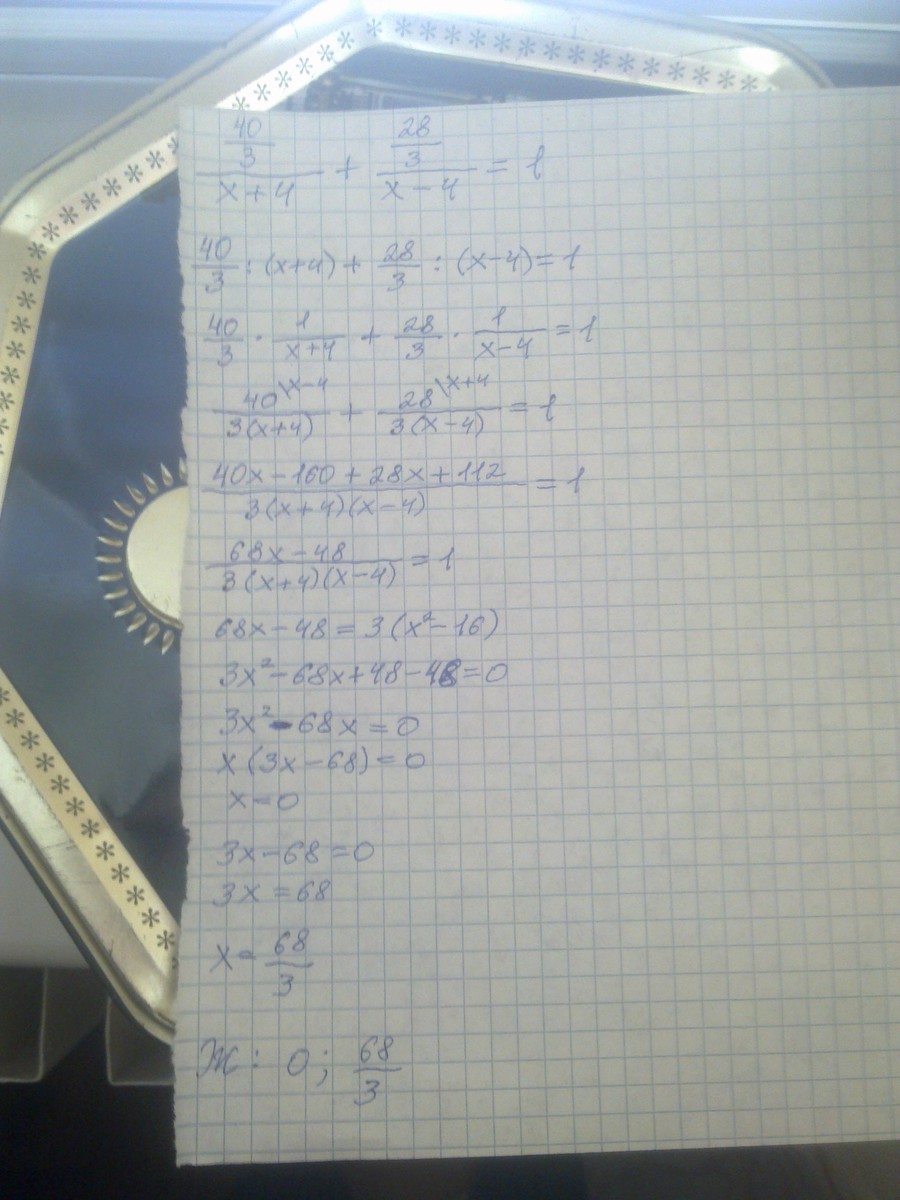 40/3/(x+4) + 28/3/(x-4) = 1
40/3 : (x+4) + 28/3 : (x-4) = 1
40/3 · 1/(x+4) + 28/3 · 1/(x-4) = 1
40\x-4/3(x+4) + 28\x+4/3(x-4) = 1
40x-160+28x+112/3(x+4)(x-4) = 1
68x-48/3(x+4)(x-4) = 1
68x-48=3(x²-16)
3x²-68x+48-48=0
3x²-68x=0
x(3x-68)=0
x=0
3x-68=0
3x=68
x=68/3
Ж: 0; 68/3